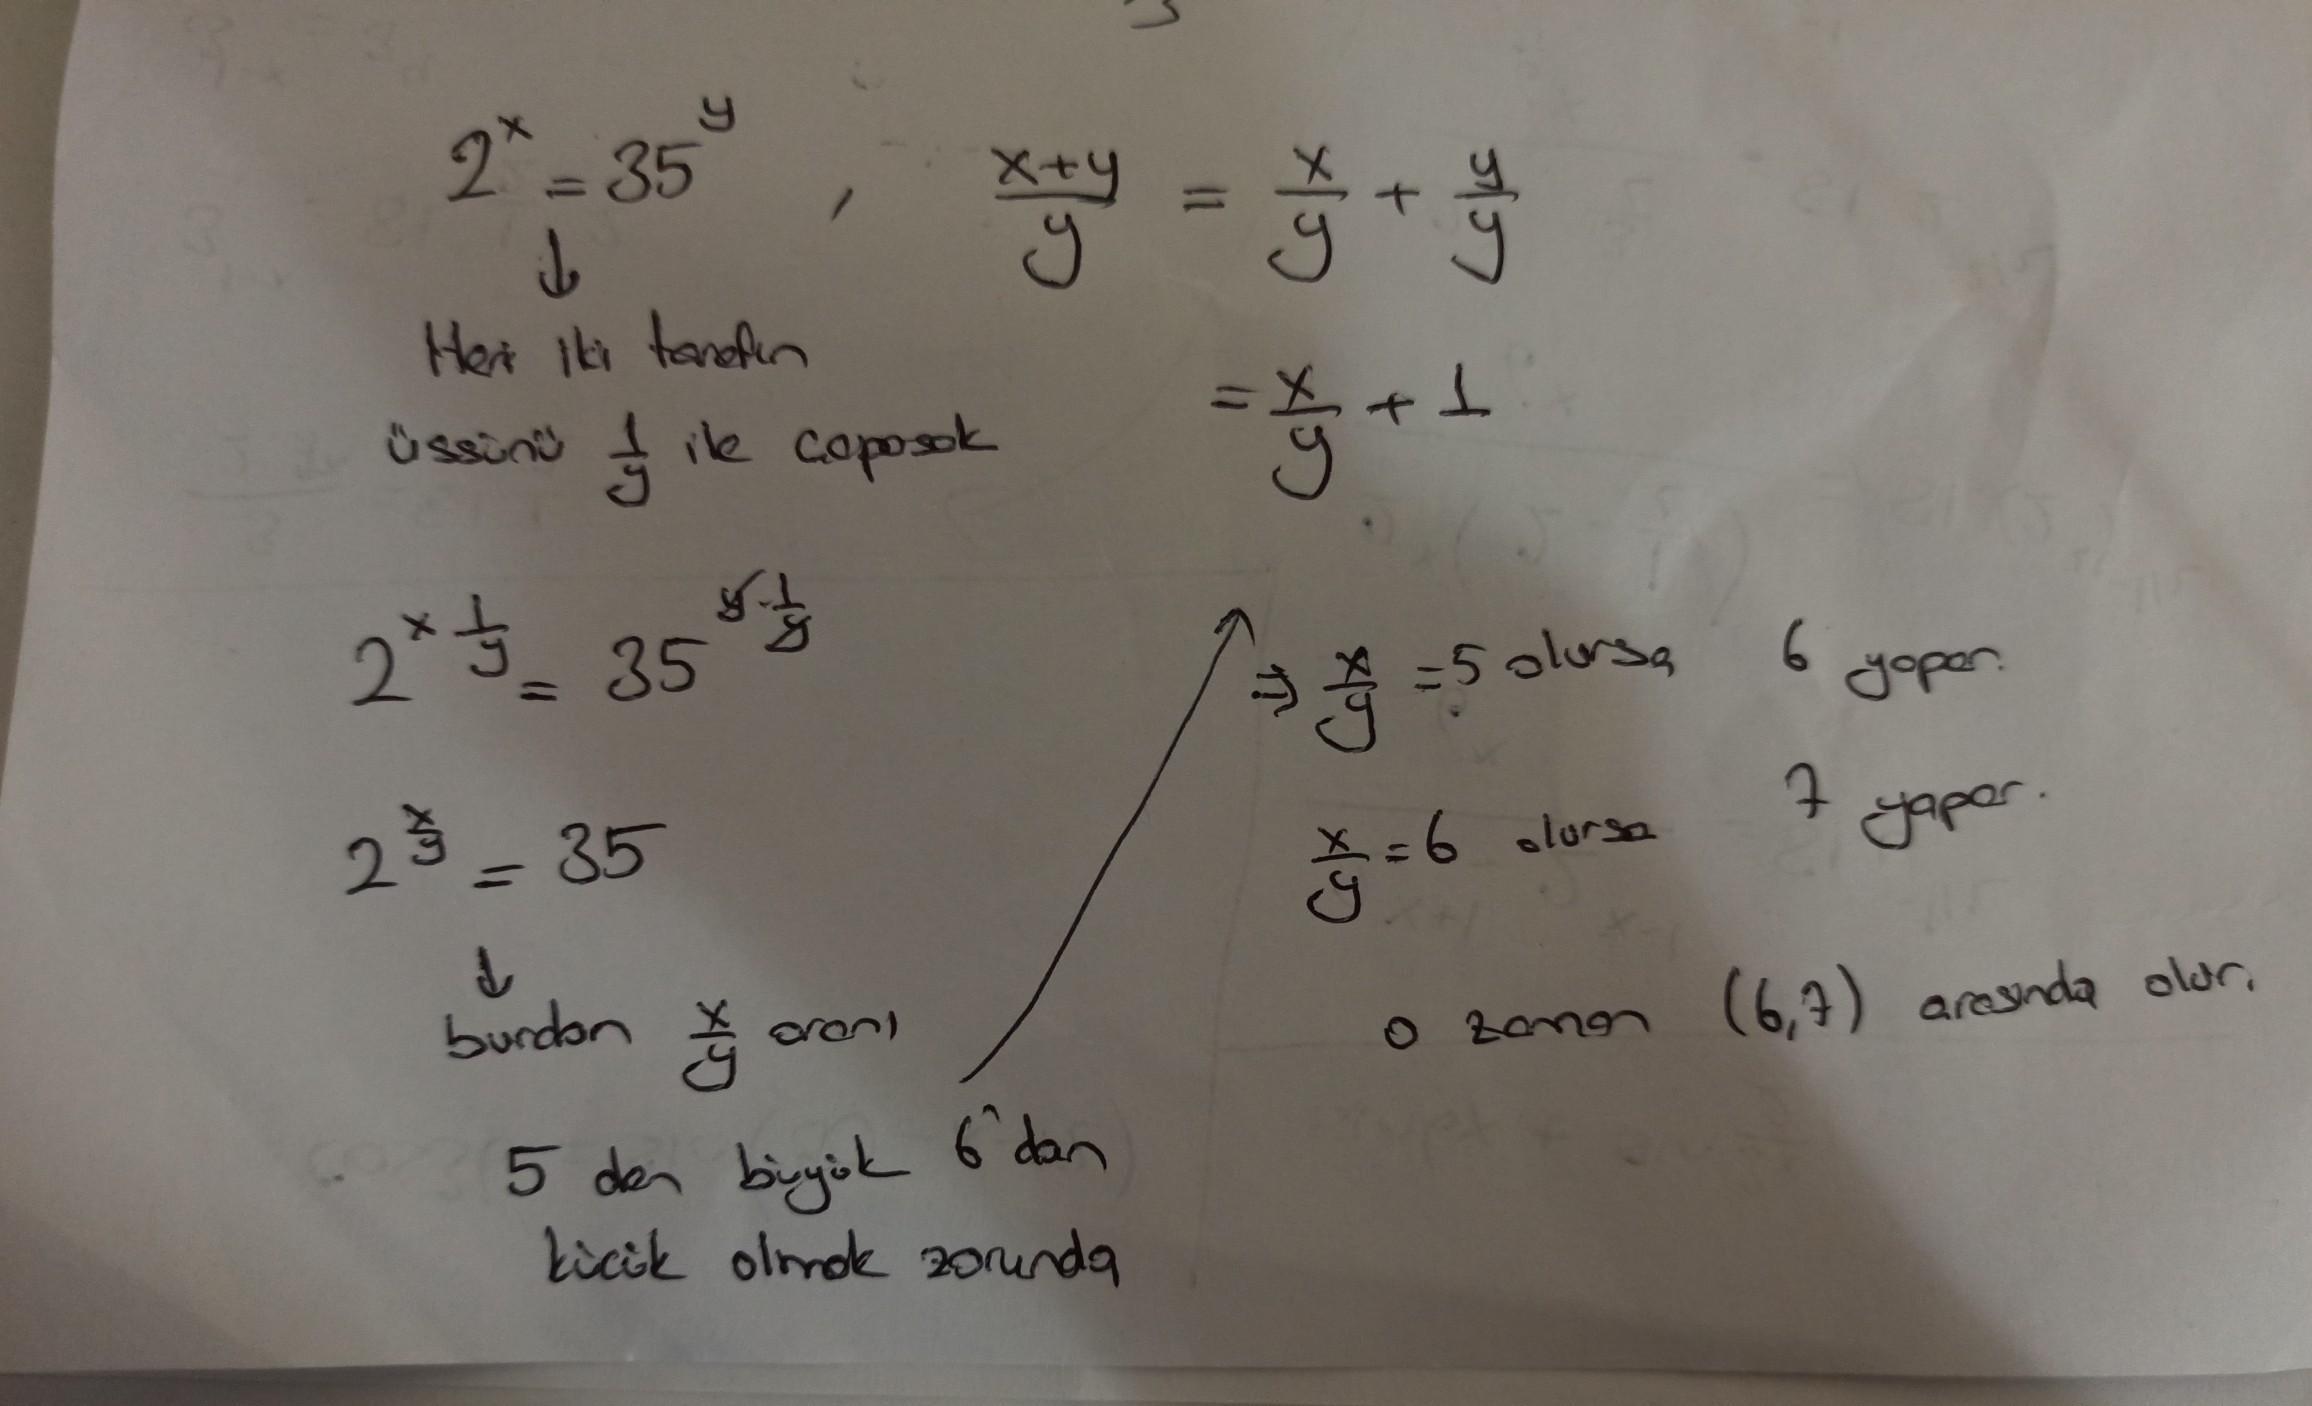 2^x = 35^y , (x+y)/y = x/y + y/y
↓
Her iki tarafın
üssünü 1/y ile çaparsak
= x/y + 1
2^(x 1/y) = 35^(y·1/y)
2^(x/y) = 35
↓
burdan x/y oranı
5 den büyük 6'dan
küçük olmak zorunda
⇒ x/y = 5 olursa 6 yapar.
x/y = 6 olursa 7 yapar.
o zaman (6,7) arasında olur.